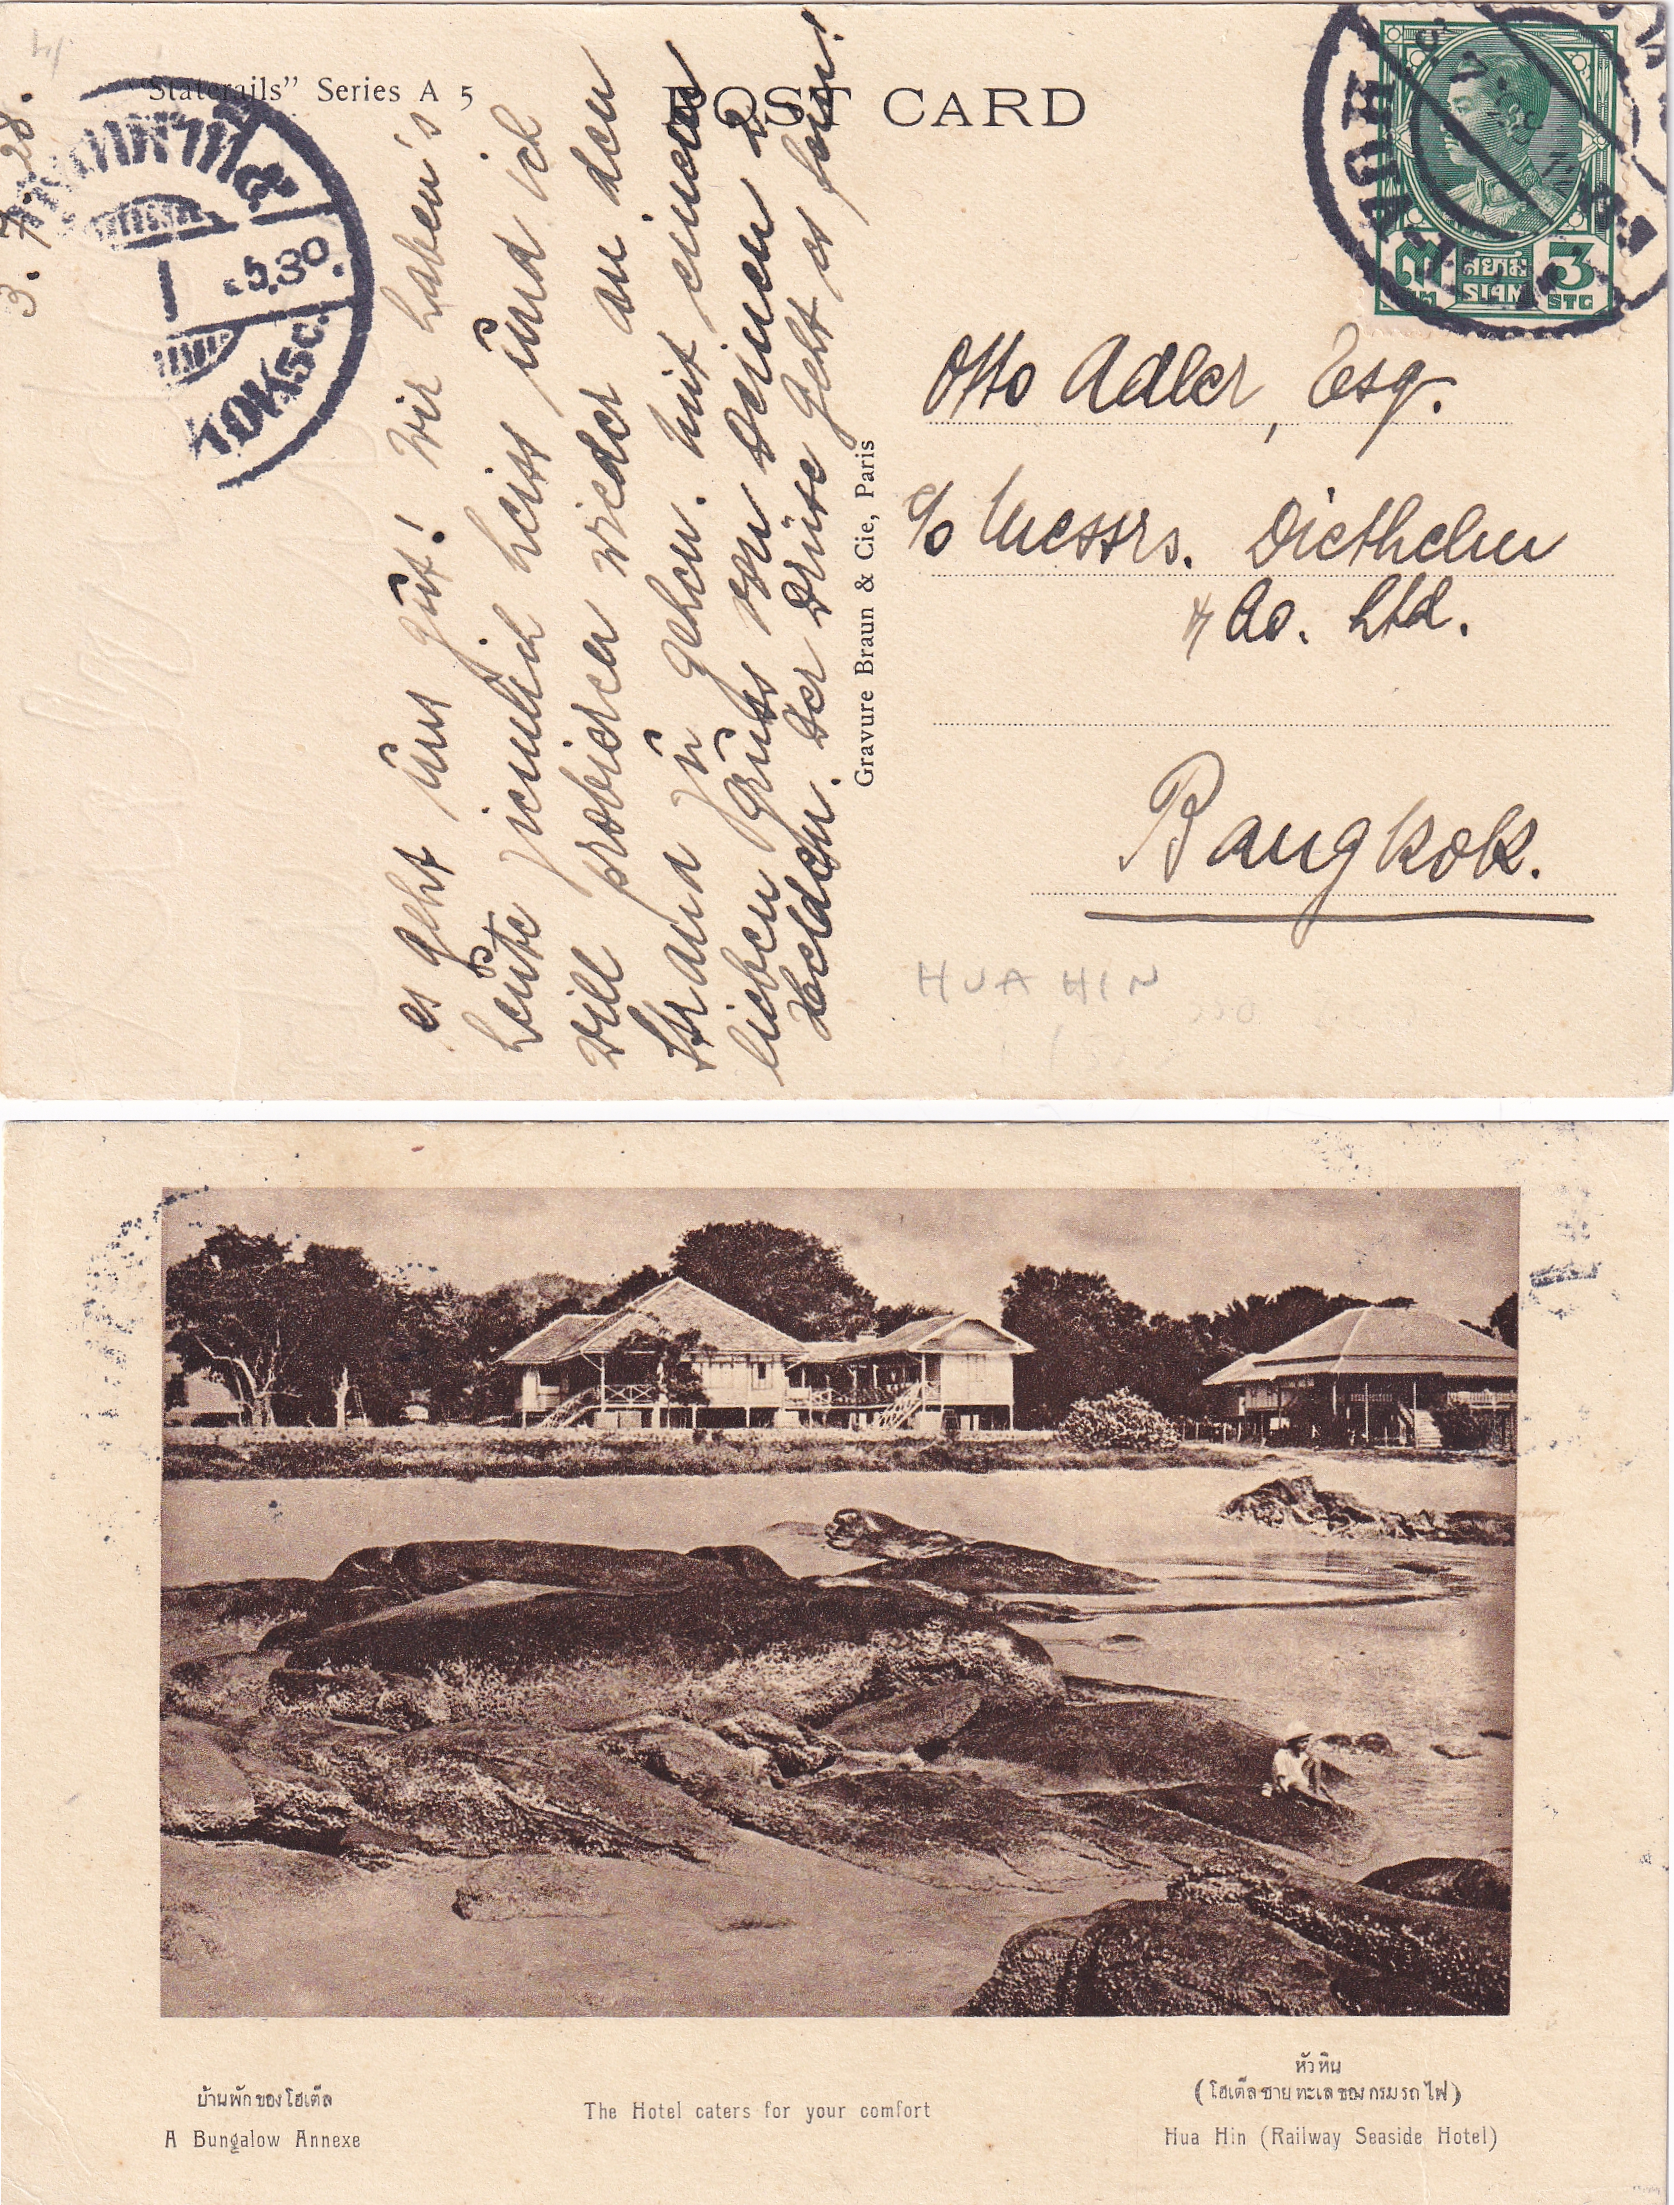 "Staterails" Series A 5
POST CARD
3. 7 28.
5.30
KOK 15c.
HUA
สยาม
SIAM
3
STG
Es geht üns güt! Wir haben's
heüte ziemlich heiss ünd ich
will probieren wieder an den
Strand zü gehen. Mit einem
lieben Grüss von Deinem
Heldchen. Der Drüse geht es fein!
Gravure Braun & Cie, Paris
Otto Adler, Esq.
c/o Messrs. Diethelm
& Co. Ltd.
Bangkok.
HUA HIN
บ้านพักของโฮเต็ล
A Bungalow Annexe
The Hotel caters for your comfort
หัวหิน
(โฮเต็ลชายทะเลของกรมรถไฟ)
Hua Hin (Railway Seaside Hotel)